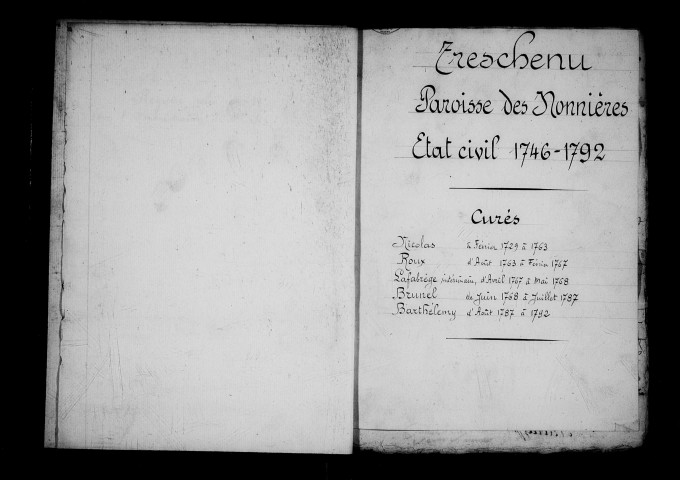 Treschenu
Paroisse des Nonnières
Etat civil 1746-1792
Curés
Nicolas à Février 1729 à 1763
Roux d'Août 1763 à Février 1767
Lafabrège intérimaire, d'Avril 1767 à Mai 1768
Brunel de Juin 1768 à Juillet 1787
Barthélemy d'Août 1787 à 1792